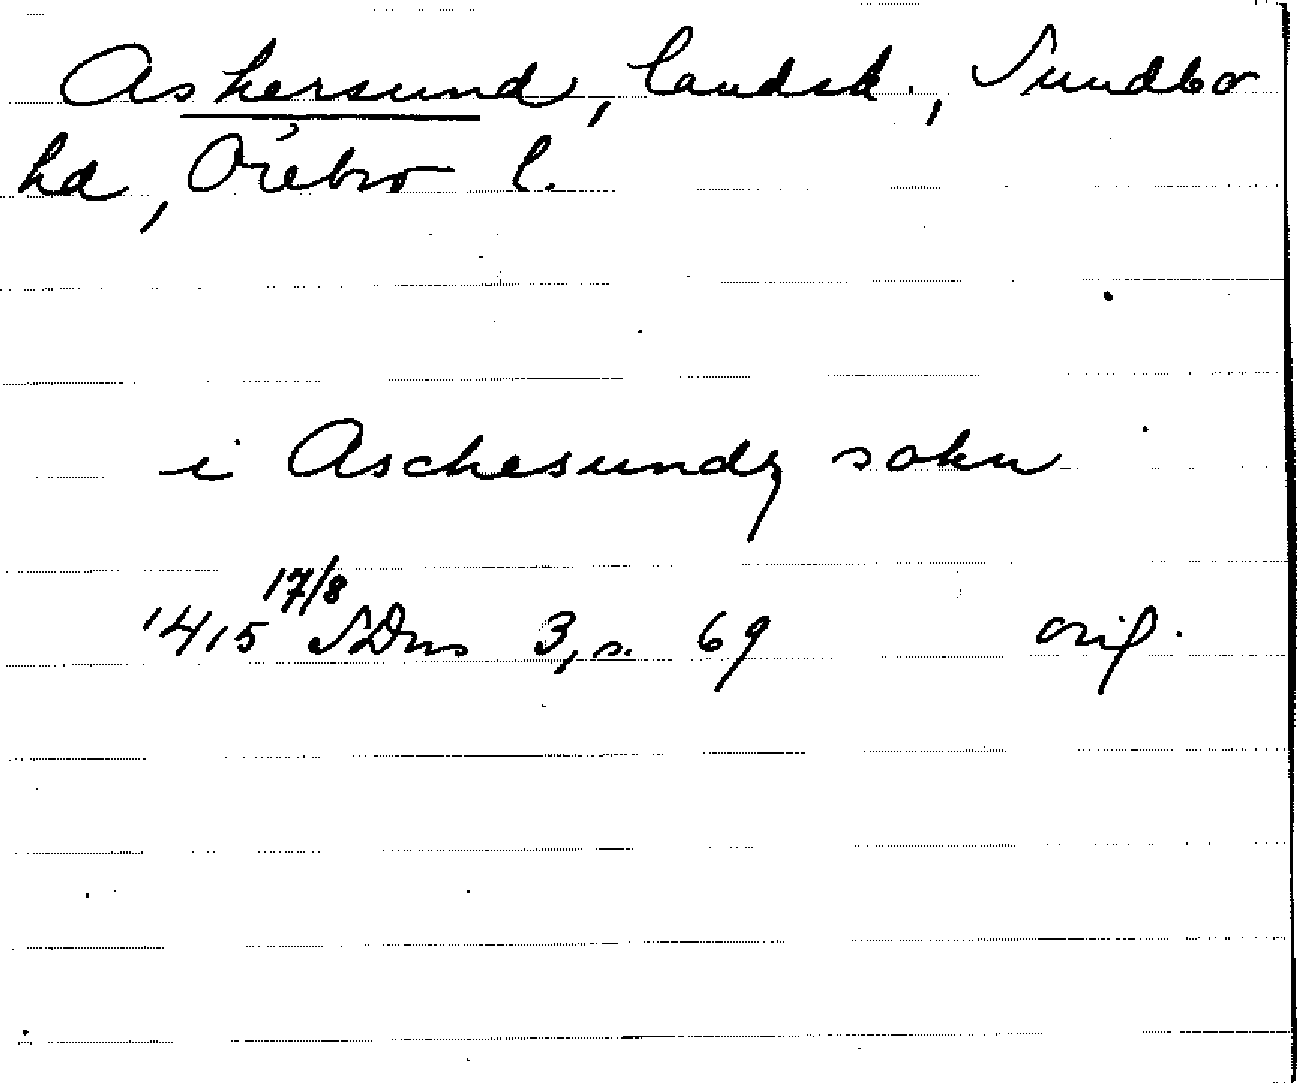 Askersund, landsk., Sundbo
hd, Örebro l.
i Aschesundz sokn
1415 17/8 SDns 3, s. 69 orig.